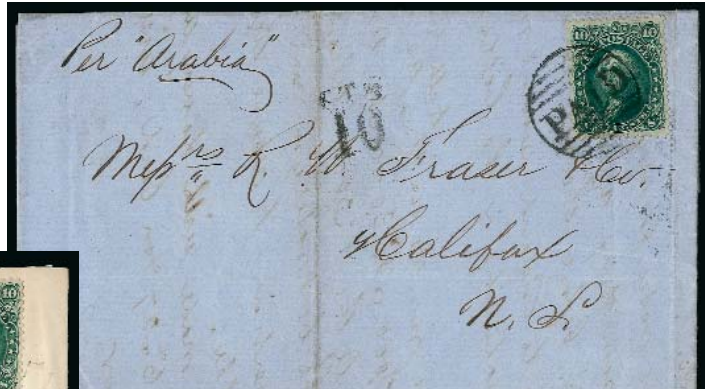 Per "Arabia"
10 10
10
PAID
Messrs R. W. Fraser & Co.
Halifax
N. S.
10